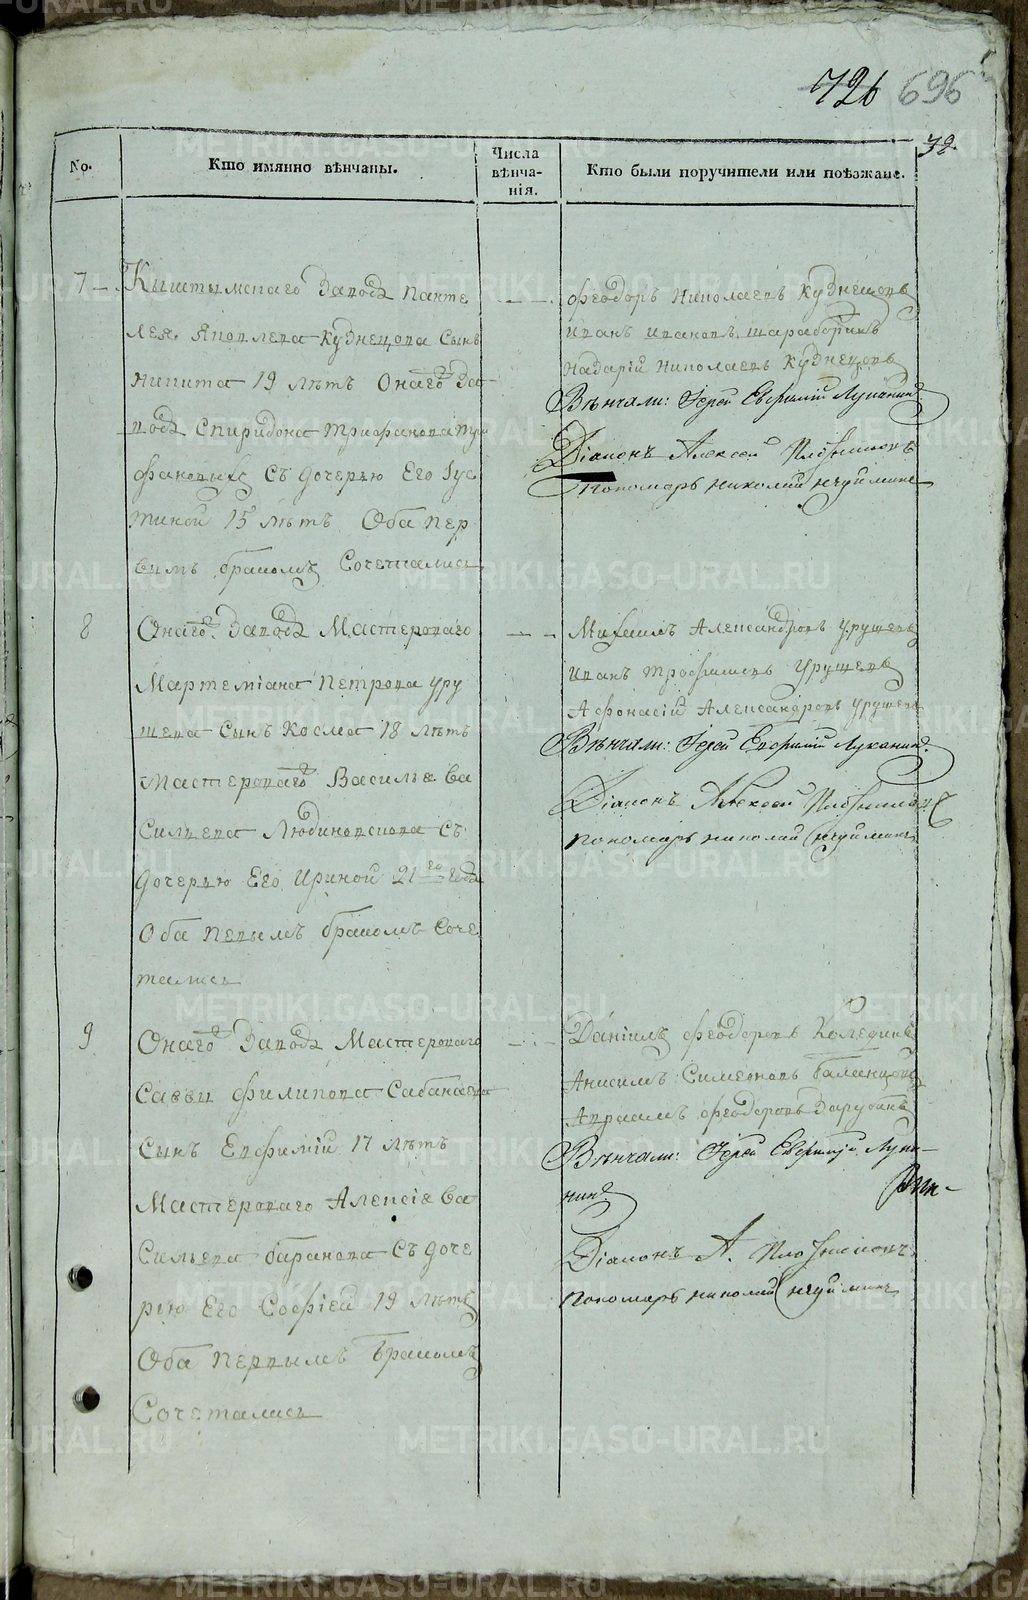 726 696
32.
No.
Кто имянно вѣнчаны.
Числа вѣнча-нія.
Кто были поручители или поѣзжане.
7
Кыштымскаго Завода Панте
лея Яковлева Кузнецова Сынъ
Никита 19 лѣтъ Онаго За-
вода Спиридона Трифанова Три
фановыхъ Съ дочерью Его Іус
тиной 15 лѣтъ Оба пер
вымъ бракомъ Сочетались
Феодоръ Николаевъ Кузнецовъ
Иванъ Ивановъ
Назарій Николаевъ Кузнецовъ
Вѣнчали: Іерей Евфимій Луканинъ
Діаконъ Алексей
Пономарь Николай
8
Онаго Завода Мастероваго
Мартеміана Петрова Уру
шева Сынъ Косма 18 лѣтъ
Мастероваго Василья Ва
сильева Любиновскова Съ
дочерью Его Ириной 21го года
Оба первымъ бракомъ Соче
тались
Михаилъ Александровъ Урушевъ
Иванъ Трофимовъ Урушевъ
Афонасій Александровъ Урушевъ
Вѣнчали: Іерей Евфимій Луканинъ.
Діаконъ Алексей
Пономарь Николай
9
Онаго Завода Мастероваго
Саввы Филипова Сабанаева
Сынъ Евфимій 17 лѣтъ
Мастероваго Алексіе Ва
сильева баранова Съ доче
рью Его Софіей 19 лѣтъ
Оба первымъ Бракомъ
Сочетались
Даніилъ Феодоровъ Коледин
Анисимъ Симеоновъ
Авраамъ Феодоровъ
Вѣнчали: Іерей Евфимій Лука-
нинъ
Діаконъ А.
Пономарь Николай
METRIKI.GASO-URAL.RU